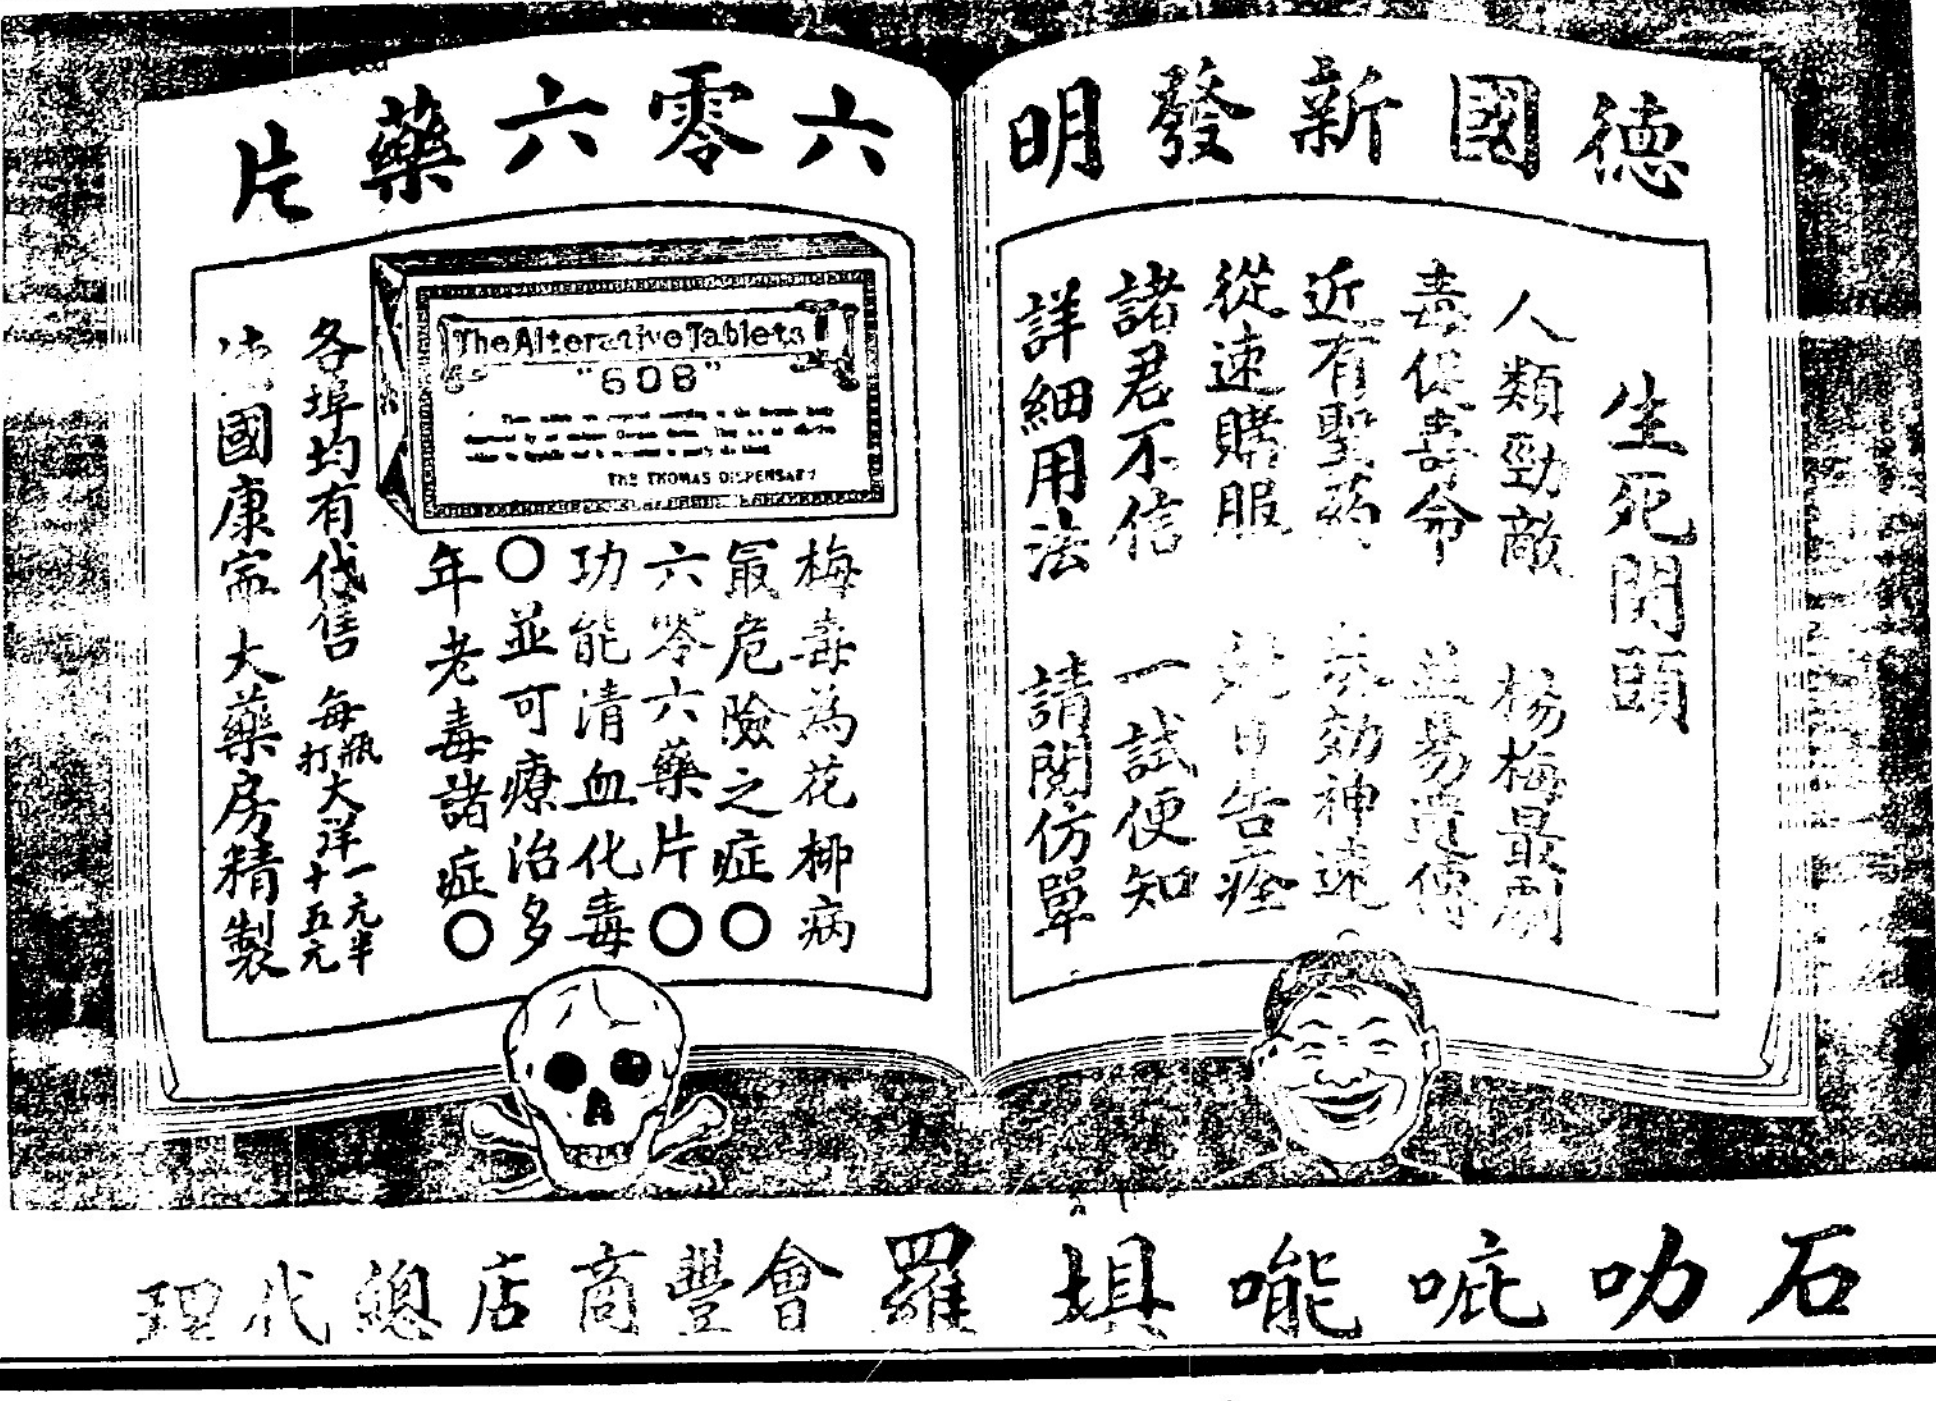 德國新發明
六零六藥片
生死関頭
人類勁敵 楊梅最劇
毒促壽命 並易遺傳
近有聖药 効神速
從速購服 日告痊
諸君不信 一試便知
詳細用法 請閱仿單
The Alterative Tablets
"606"
THE THOMAS DISPENSARY
梅毒為花柳病
最危險之症〇
六零六藥片〇
功能清血化毒
〇並可療治多
年老毒諸症〇
各埠均有代售 每瓶大洋一元半
打 十五元
國康甯大藥房精製
石叻吡能埧羅會豐商店總代理